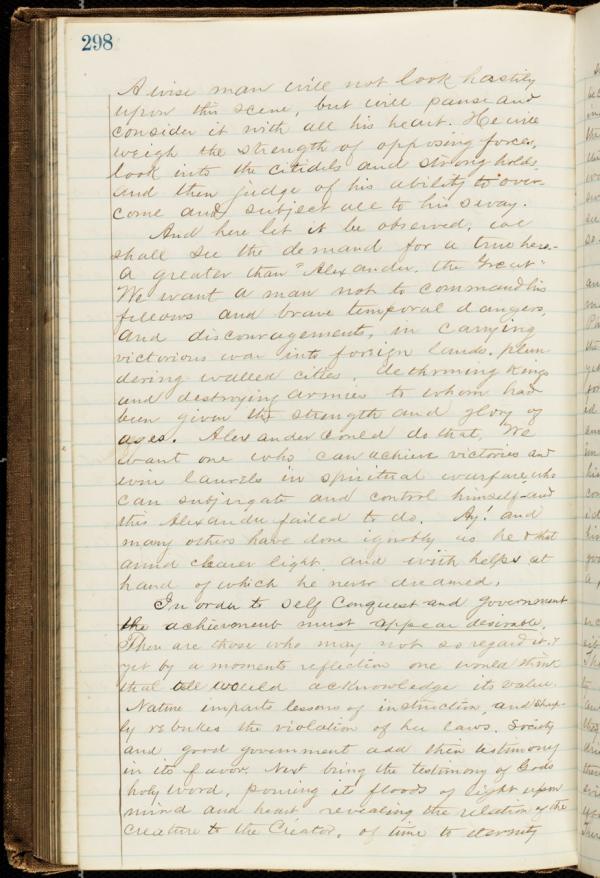 298
A wise man will not look hastily
upon this scene, but will pause and
consider it with all his heart. He will
weigh the strength of opposing forces,
look into the citidels and strong holds
and then judge of his ability to over-
come and subject all to his sway.
And here let it be observed, we
shall see the demand for a true hero-
A greater than "Alexander. the Great"
We want a man not to command his
fellows and brave temporal dangers,
and discouragements, in carrying
victorious war into foreign lands. plun
dering walled cities, dethroning kings
and destroying armies to whom had
been given the strength and glory of
ages. Alexander could do that, We
want one who can achieve victories and
win laurels in spiritual warfare, who
can subjugate and control himself-and
this Alexander failed to do. Ay! and
many others have done ignobly as he & that
amid clearer light, and with helps at
hand of which he never dreamed.
In order to self Conquest and government
the achievement must appear desirable.
There are those who may not so regard it,
yet by a moments reflection one would think
that all would acknowledge its value.
Nature imparts lessons of instruction, and sharp-
ly rebukes the violation of her laws. Society
and good government add their testimony
in its favor. Next bring the testimony of Gods
holy word, pouring its floods of light upon
mind and heart revealing the relation of the
creature to the Creator, of time to eternity